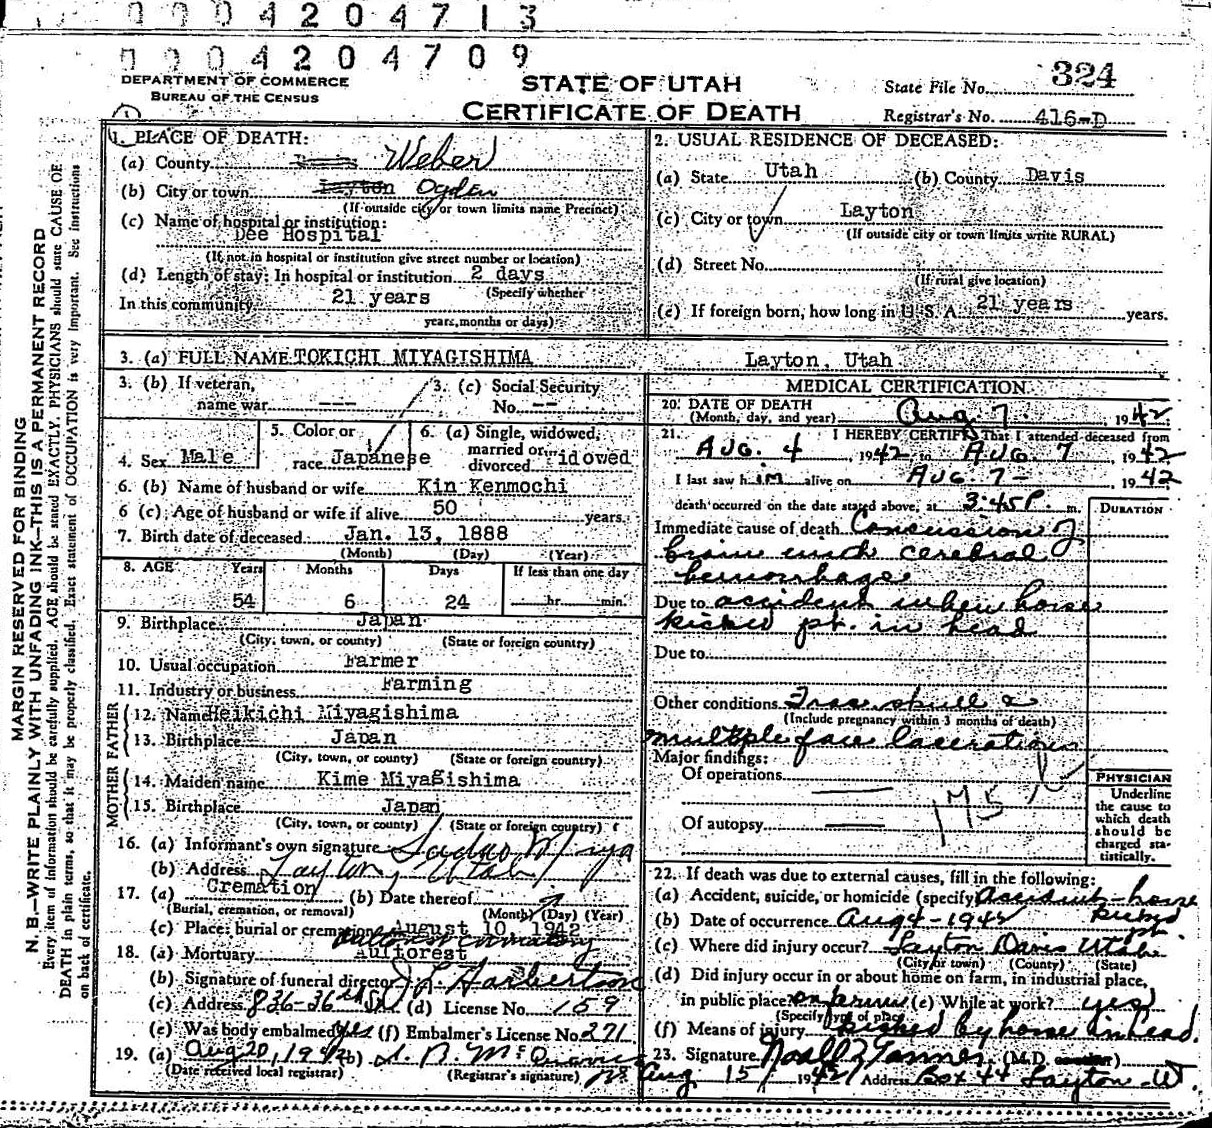 0004204713
0004204709
DEPARTMENT OF COMMERCE
BUREAU OF THE CENSUS
STATE OF UTAH
CERTIFICATE OF DEATH
State File No. 324
Registrar's No. 416-D
MARGIN RESERVED FOR BINDING
N. B.—WRITE PLAINLY WITH UNFADING INK—THIS IS A PERMANENT RECORD
Every item of information should be carefully supplied. AGE should be stated EXACTLY. PHYSICIANS should state CAUSE OF
DEATH in plain terms, so that it may be properly classified. Exact statement of OCCUPATION is very important. See instructions
on back of certificate.
1. PLACE OF DEATH:
(a) County Weber
(b) City or town Layton Ogden
(If outside city or town limits name Precinct)
(c) Name of hospital or institution:
Dee Hospital
(If not in hospital or institution give street number or location)
(d) Length of stay: In hospital or institution 2 days
(Specify whether
In this community 21 years
years, months or days)
2. USUAL RESIDENCE OF DECEASED:
(a) State Utah (b) County Davis
(c) City or town Layton
(If outside city or town limits write RURAL)
(d) Street No.
(If rural give location)
(e) If foreign born, how long in U. S. A. 21 years years.
3. (a) FULL NAME TOKICHI MIYAGISHIMA Layton, Utah
3. (b) If veteran,
name war ---
3. (c) Social Security
No. --
4. Sex Male
5. Color or
race Japanese
6. (a) Single, widowed,
married or
divorced idowed
6. (b) Name of husband or wife Kin Kenmochi
6 (c) Age of husband or wife if alive 50 years
7. Birth date of deceased Jan. 13, 1888
(Month) (Day) (Year)
8. AGE Years Months Days If less than one day
54 6 24 hr. min.
9. Birthplace Japan
(City, town, or county) (State or foreign country)
10. Usual occupation Farmer
11. Industry or business Farming
FATHER
12. Name Heikichi Miyagishima
13. Birthplace Japan
(City, town, or county) (State or foreign country)
MOTHER
14. Maiden name Kime Miyagishima
15. Birthplace Japan
(City, town, or county) (State or foreign country)
16. (a) Informant's own signature Sadao Miya
(b) Address Layton, Utah
17. (a) Cremation (b) Date thereof
(Burial, cremation, or removal) (Month) (Day) (Year)
(c) Place; burial or cremation August 10, 1942
crematory
18. (a) Mortuary Aultorest
(b) Signature of funeral director Harbertson
(c) Address 836-36th St (d) License No. 159
(e) Was body embalmed yes (f) Embalmer's License No. 271
19. (a) Aug 20, 1942 (b)
(Date received local registrar) (Registrar's signature)
MEDICAL CERTIFICATION
20. DATE OF DEATH
(Month, day, and year) Aug. 7. 1942
21. I HEREBY CERTIFY That I attended deceased from
AUG. 4, 1942 to AUG. 7, 1942
I last saw him alive on AUG. 7-, 1942
death occurred on the date stated above, at 3:45 P. m.
DURATION
Immediate cause of death Concussion of
brain with cerebral
hemorrhage
Due to accident when horse
kicked pt. in head
Due to
Other conditions Frac. skull &
(Include pregnancy within 3 months of death)
multiple face lacerations
Major findings:
Of operations
Of autopsy
175
PHYSICIAN
Underline
the cause to
which death
should be
charged sta-
tistically.
22. If death was due to external causes, fill in the following:
(a) Accident, suicide, or homicide (specify Accident-horse
kicked pt.
(b) Date of occurrence Aug 4-1942
(c) Where did injury occur? Layton Davis Utah
(City or town) (County) (State)
(d) Did injury occur in or about home on farm, in industrial place,
in public place? on farm (e) While at work? yes
(Specify type of place)
(f) Means of injury kicked by horse in head.
23. Signature Noall Z Tanner (M.D.
Aug 15, 1942 Address Box 44 Layton-Ut.